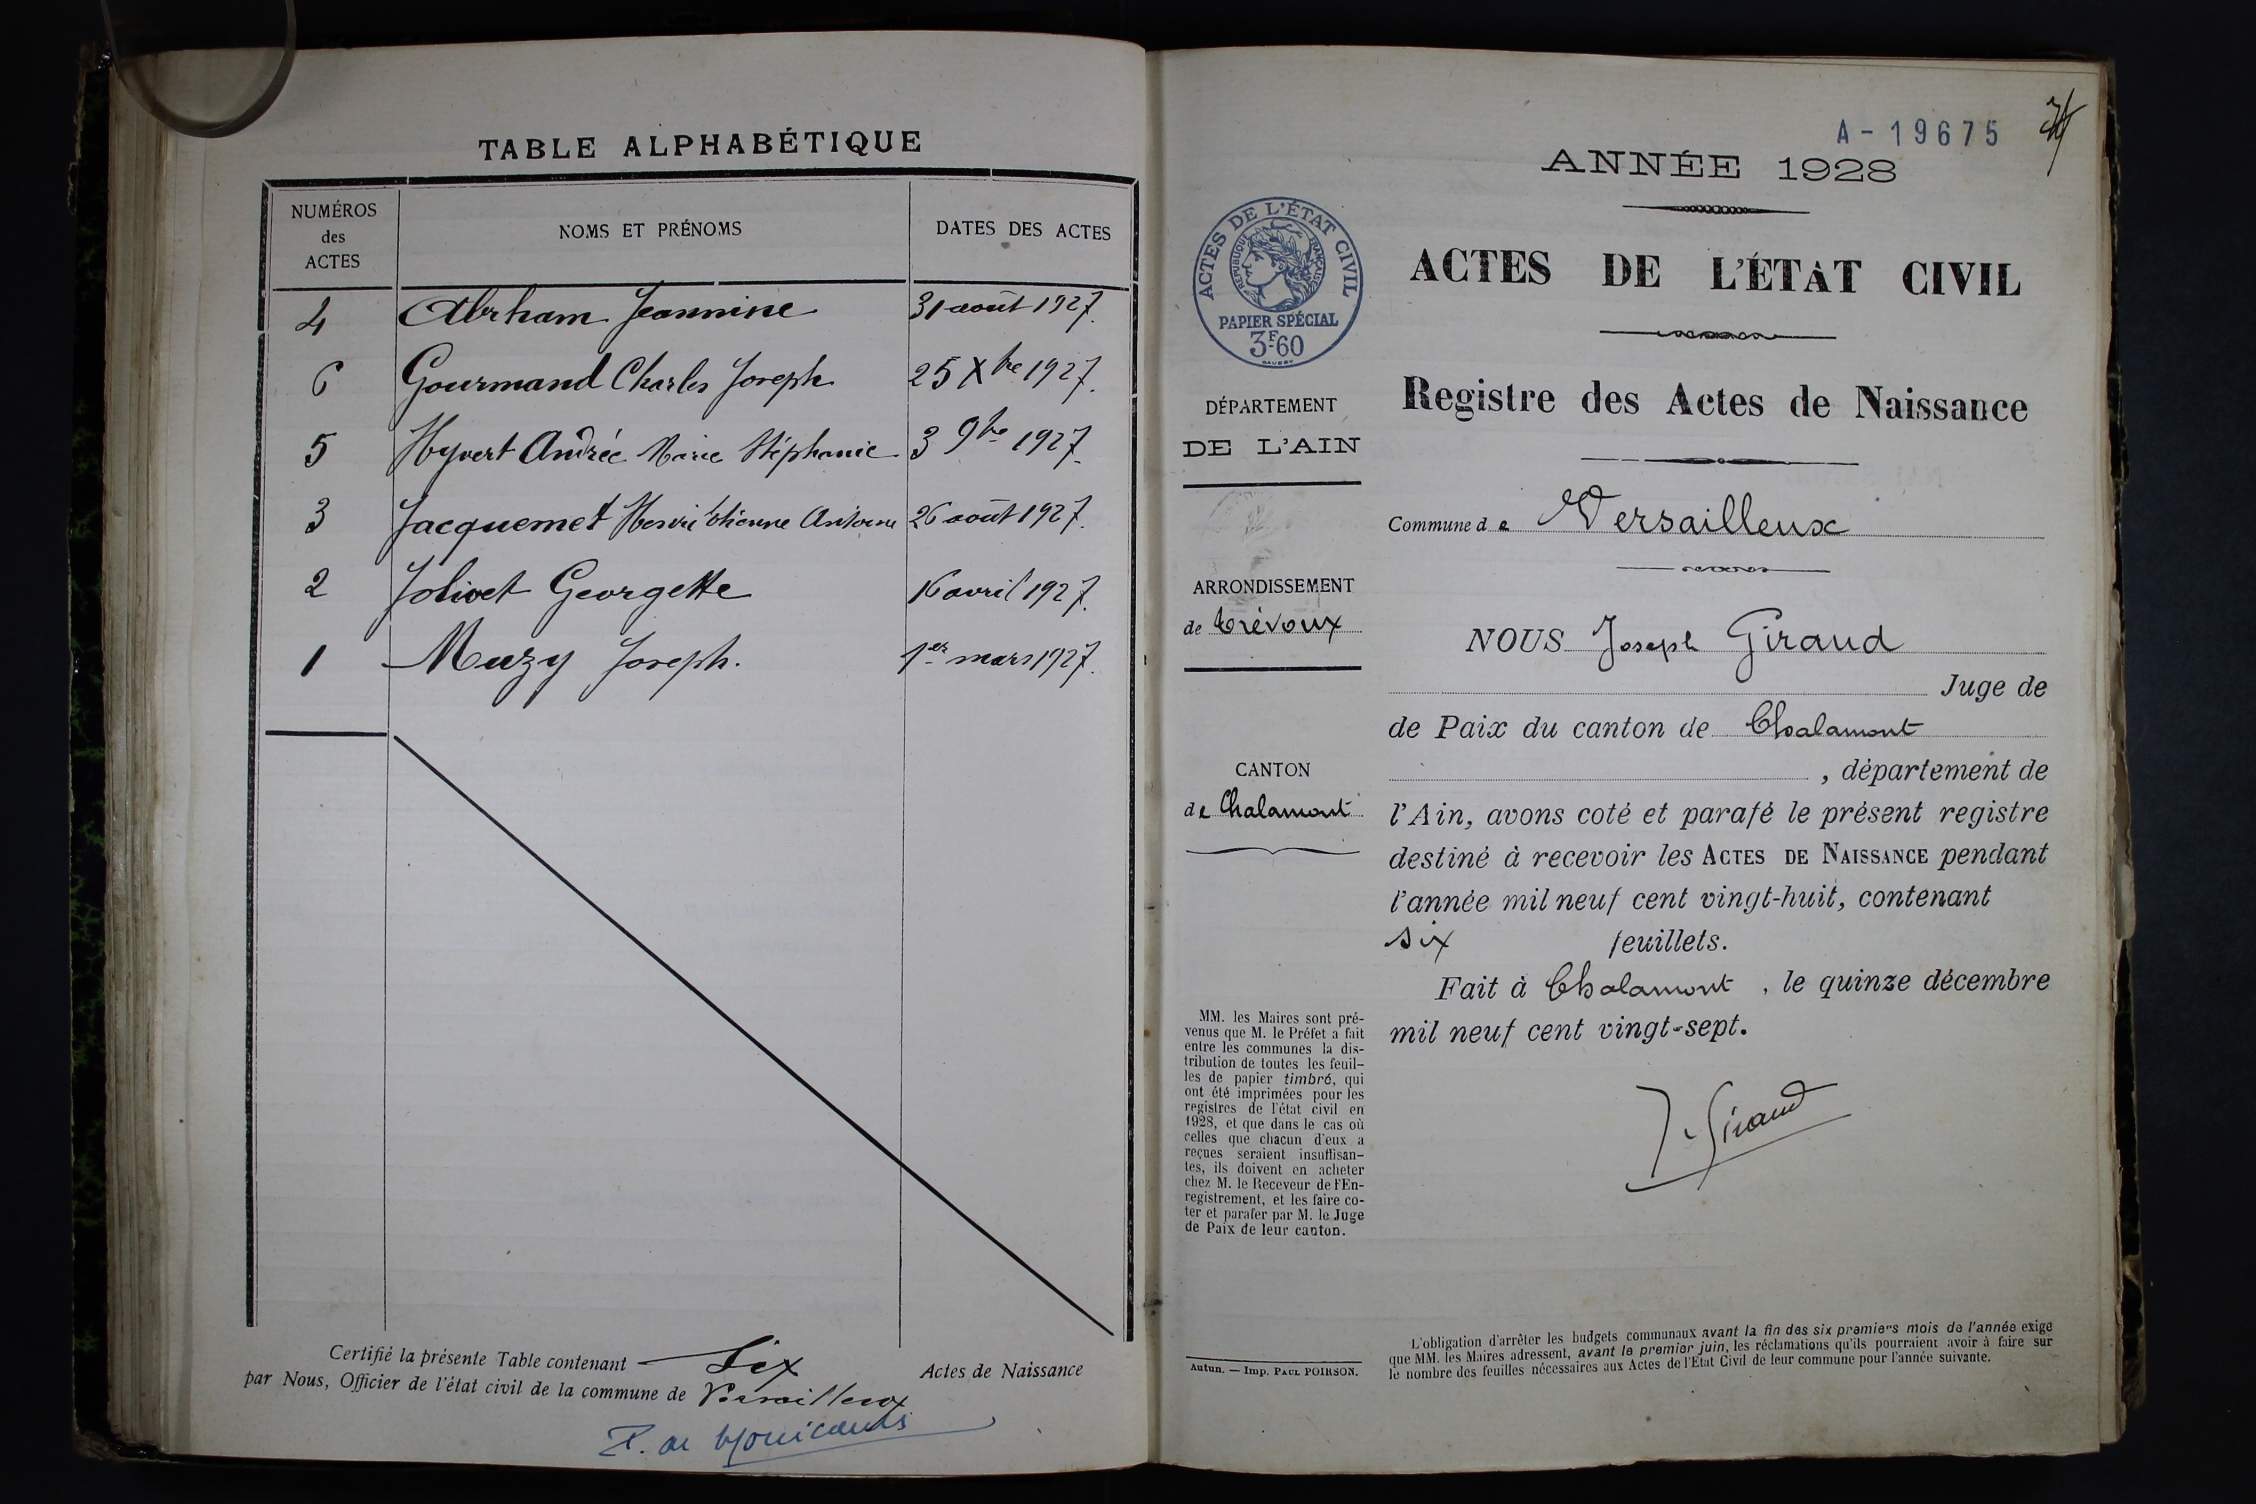 TABLE ALPHABÉTIQUE
NUMÉROS des ACTES
NOMS ET PRÉNOMS
DATES DES ACTES
4 Abrham Jeannine 31 août 1927.
6 Gourmand Charles Joseph 25 Xbre 1927.
5 Hyvert Andrée Marie Stéphanie 3 9bre 1927.
3 Jacquemet Henri Etienne Antoine 26 août 1927.
2 Jolivet Georgette 16 avril 1927.
1 Muzy Joseph. 1er mars 1927.
Certifié la présente Table contenant Six Actes de Naissance
par Nous, Officier de l'état civil de la commune de Versailleux
A-19675
ANNÉE 1928
ACTES DE L'ÉTAT CIVIL
RÉPUBLIQUE FRANÇAISE
PAPIER SPÉCIAL
3F60
DÉPARTEMENT
DE L'AIN
ARRONDISSEMENT
de Trévoux
CANTON
de Chalamont
MM. les Maires sont pré-
venus que M. le Préfet a fait
entre les communes la dis-
tribution de toutes les feuil-
les de papier timbré, qui
ont été imprimées pour les
registres de l'état civil en
1928, et que dans le cas où
celles que chacun d'eux a
reçues seraient insuffisan-
tes, ils doivent en acheter
chez M. le Receveur de l'En-
registrement, et les faire co-
ter et parafer par M. le Juge
de Paix de leur canton.
Autun. — Imp. PAUL POIRSON.
ACTES DE L'ÉTAT CIVIL
Registre des Actes de Naissance
Commune de Versailleux
NOUS Joseph Giraud
Juge de
de Paix du canton de Chalamont
, département de
l'Ain, avons coté et parafé le présent registre
destiné à recevoir les ACTES DE NAISSANCE pendant
l'année mil neuf cent vingt-huit, contenant
six feuillets.
Fait à Chalamont, le quinze décembre
mil neuf cent vingt-sept.
J. Giraud
L'obligation d'arrêter les budgets communaux avant la fin des six premiers mois de l'année exige
que MM. les Maires adressent, avant le premier juin, les réclamations qu'ils pourraient avoir à faire sur
le nombre des feuilles nécessaires aux Actes de l'Etat Civil de leur commune pour l'année suivante.